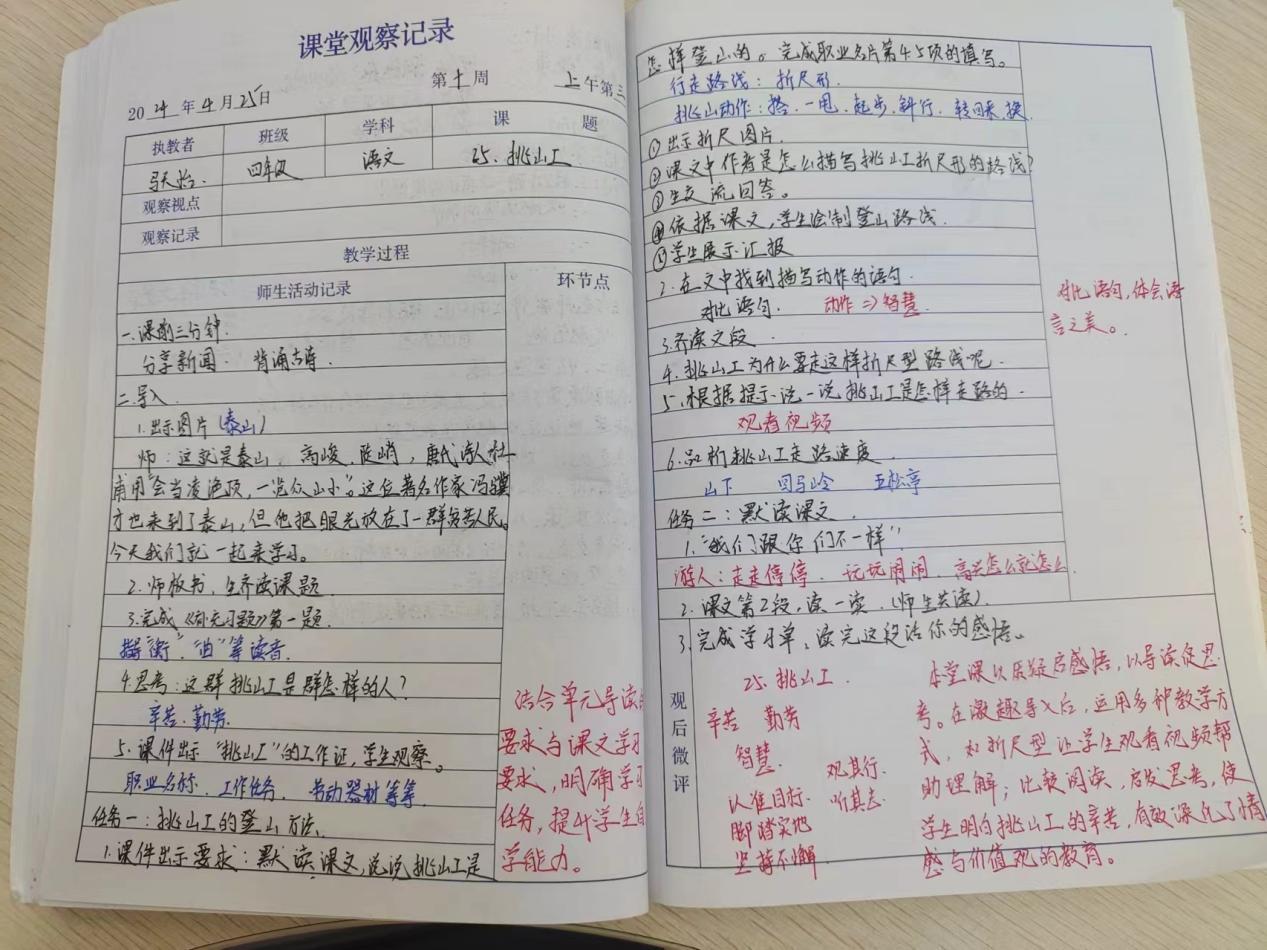 课堂观察记录
2024年4月25日 第十周 上午第三
执教者 班级 学科 课 题
四年级 语文 25.挑山工
观察视点
观察记录
教学过程
师生活动记录 环节点
一.课前三分钟.
分享新闻 背诵古诗.
二.导入.
1.出示图片(泰山)
师:这就是泰山.高峻.陡峭,唐代诗人杜
甫用"会当凌绝顶,一览众山小"。这位著名作家冯骥
才也来到了泰山,但他把眼光放在了一群劳苦人民。
今天我们就一起来学习。
2.师板书,生齐读课题.
3.完成《 习题》第一题.
"衡"."曲"等读音.
4.思考:这群挑山工是群怎样的人?
辛苦.勤劳.
5.课件出示"挑山工"的工作证,学生观察。
职业名称.工作任务.劳动器材等等.
任务一:挑山工的登山方法.
1.课件出示要求:默读课文,说说挑山工是
结合单元导读的
要求与课文学习
要求,明确学习
任务,提升学生自
学能力。
怎样登山的。完成职业名片第4.5项的填写。
行走路线:折尺形.
挑山动作:搭.一甩.起步.斜行.转回来.换
①出示折尺图片.
②课文中作者是怎么描写挑山工折尺形的路线?
③生交流回答。
④依据课文,学生绘制登山路线.
⑤学生展示汇报
2.在文中找到描写动作的语句.
对比语句. 动作⇒智慧.
3.齐读文段.
4.挑山工为什么要走这样折尺型路线呢.
5.根据提示说一说挑山工是怎样走路的.
观看视频
6.品析挑山工走路速度.
山下 回马岭 五松亭
任务二:默读课文.
1."我们跟你们不一样"
游人:走走停停.玩玩闹闹.高兴怎么就怎么
2.课文第2段,读一读.(师生共读)
3.完成学习单,读完这段话你的感悟。
对比语句,体会语
言之美。
观后微评
25.挑山工.
辛苦 勤劳
智慧. 观其行.
认准目标. 听其言.
脚踏实地
坚持不懈
本堂课以质疑启感悟,以导读促思
考。在激趣导入后,运用多种教学方
式,如折尺型让学生观看视频帮
助理解;比较阅读,启发思考,使
学生明白挑山工的辛苦,有效深化了情
感与价值观的教育。